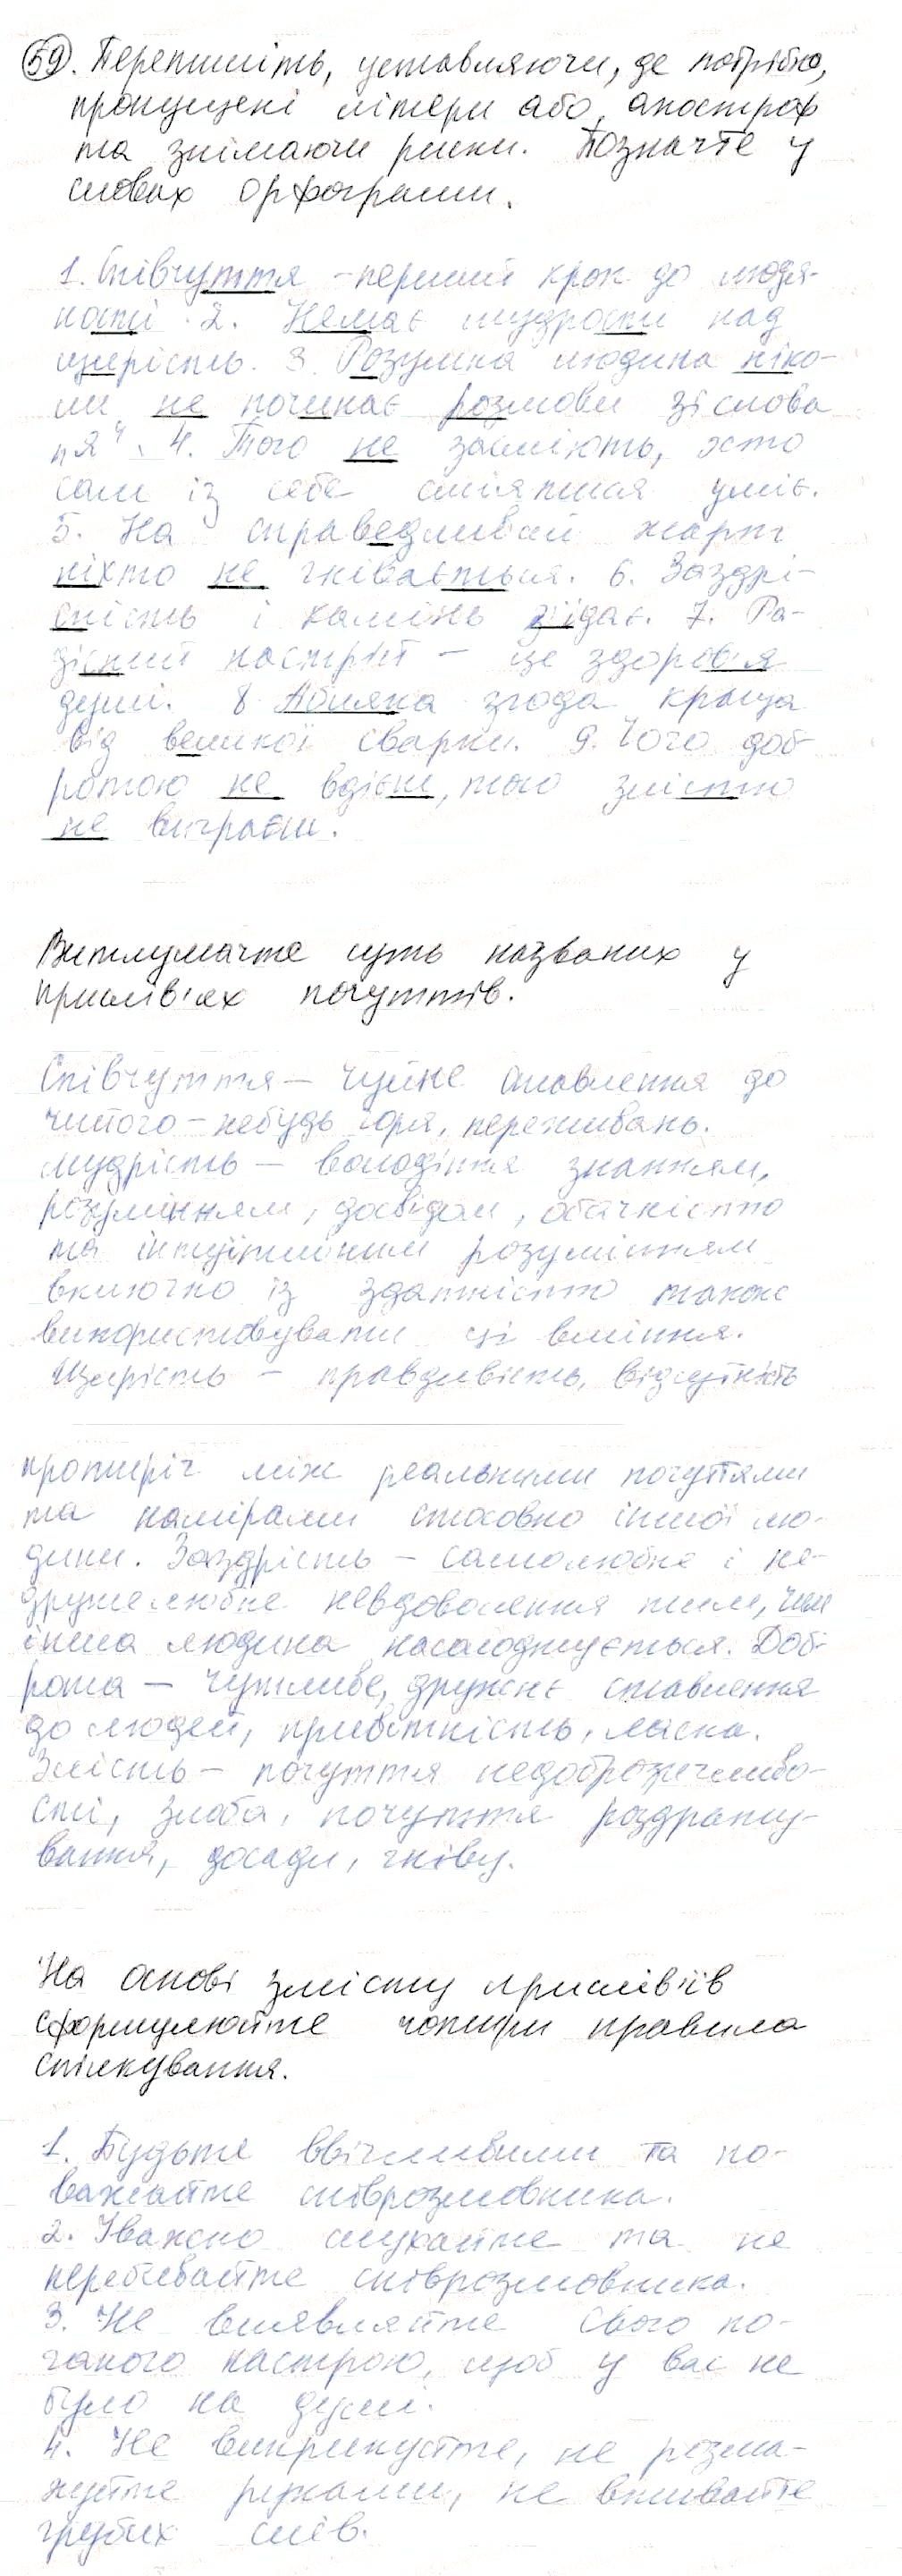 59. Перепишіть, уставляючи, де потрібно,
пропущені літери або апостроф
та знімаючи риски. Позначте у
словах орфограми.
1. Співчуття - перший крок до людя-
ності. 2. Немає мудрости над
щирість. 3. Розумна людина ніко-
ли не починає розмови зі слова
„я“. 4. Того не засміють, хто
сам із себе сміяться уміє.
5. На справедливий жарт
ніхто не гнівається. 6. Заздрі-
сність і камінь з'їдає. 7. Ра-
дісний настрій - це здоров'я
душі. 8. Абияка згода краща
від великої сварки. 9. Чого доб-
ротою не вдієш, того злістю
не виграєш.
Витлумачте суть названих у
прислів'ях почуттів.
Співчуття - чуйне ставлення до
чийого-небудь горя, переживань.
Мудрість - володіння знанням,
розумінням, досвідом, обачністю
та інтуїтивним розумінням
включно із здатністю також
використовувати ці вміння.
Щирість - правдивість, відсутність
протиріч між реальними почуттями
та намірами стосовно іншої лю-
дини. Заздрість - самолюбне і не-
дружелюбне невдоволення тим, чим
інша людина насолоджується. Доб-
рота - чутливе, дружнє ставлення
до людей, привітність, ласка.
Злість - почуття недоброзичливо-
сті, злоба, почуття роздрату-
вання, досади, гніву.
На основі змісту прислів'їв
сформулюйте чотири правила
спілкування.
1. Будьте ввічливими та по-
важайте співрозмовника.
2. Уважно слухайте та не
перебивайте співрозмовника.
3. Не виявляйте свого по-
ганого настрою, щоб у вас не
було на душі.
4. Не викрикуйте, не розма-
хуйте руками, не вживайте
грубих слів.